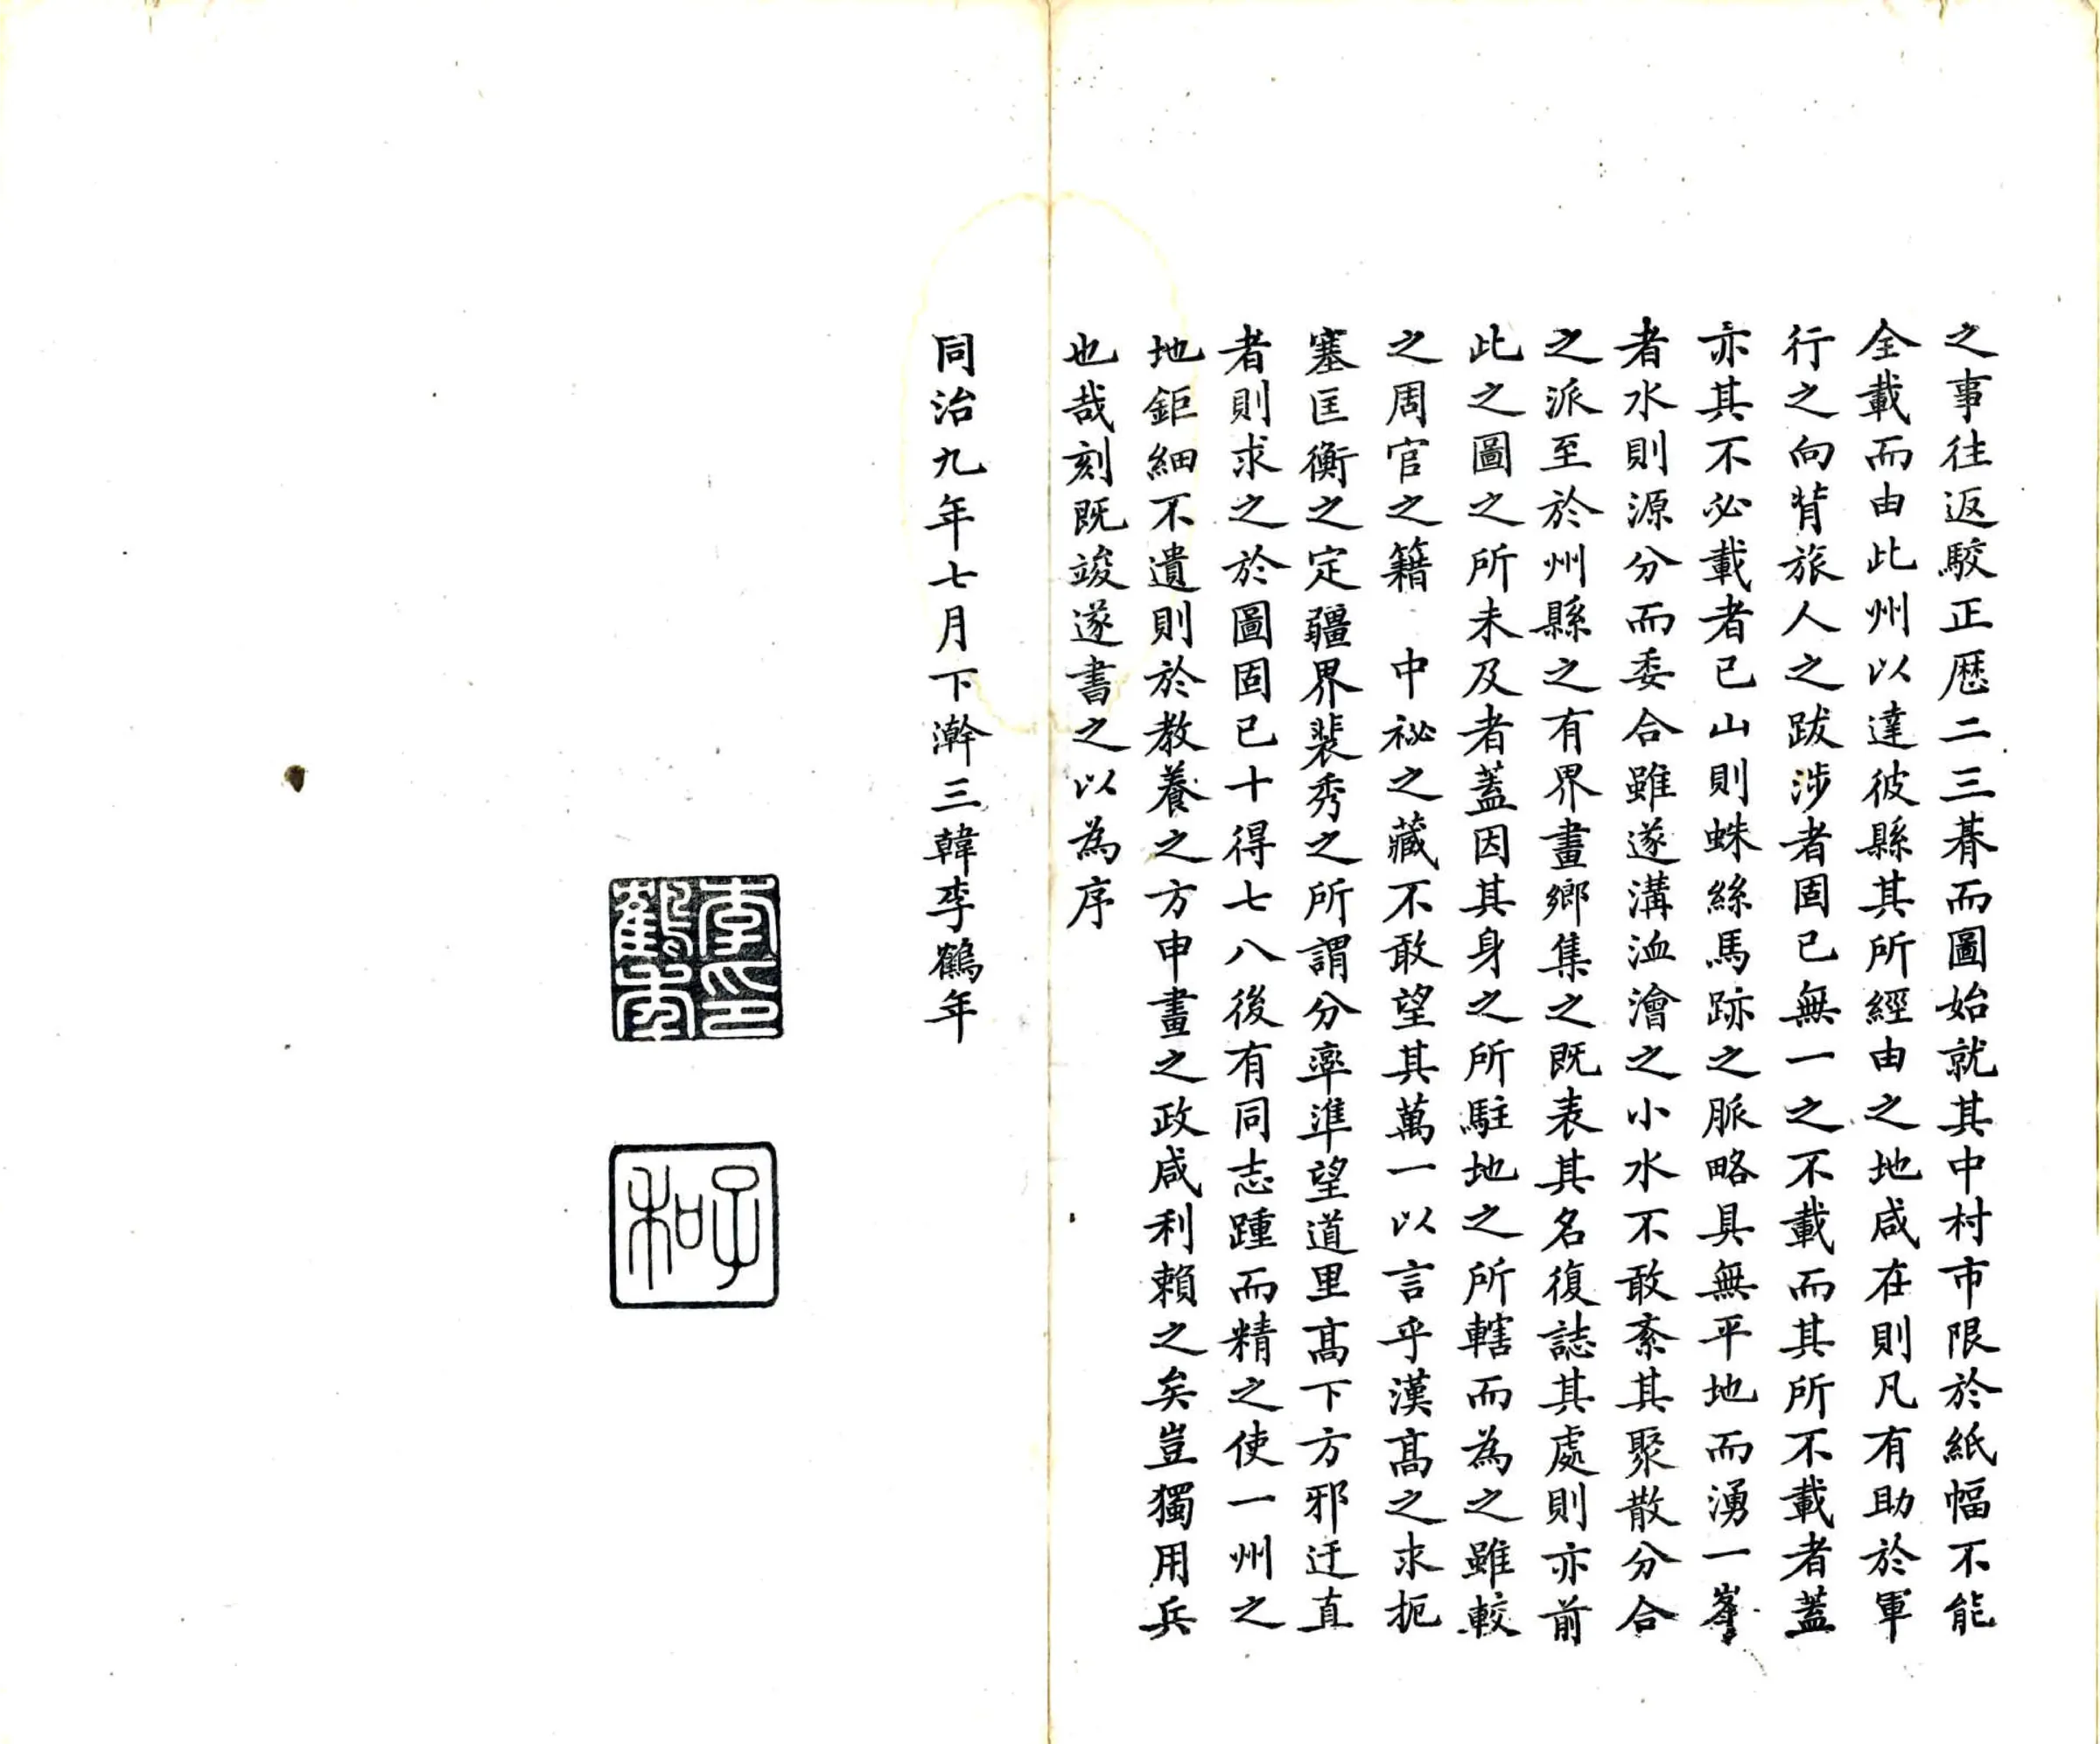 之事往返駮正歷二三朞而圖始就其中村市限於紙幅不能
全載而由此州以達彼縣其所經由之地咸在則凡有助於軍
行之向背旅人之跋涉者固已無一之不載而其所不載者蓋
亦其不必載者已山則蛛絲馬跡之脈略具無平地而湧一峯
者水則源分而委合雖遂溝洫澮之小水不敢紊其聚散分合
之派至於州縣之有界畫鄉集之既表其名復誌其處則亦前
此之圖之所未及者蓋因其身之所駐地之所轄而為之雖較
之周官之籍　中祕之藏不敢望其萬一以言乎漢髙之求扼
塞匡衡之定疆界裴秀之所謂分率準望道里髙下方邪迂直
者則求之於圖固已十得七八後有同志踵而精之使一州之
地鉅細不遺則於教養之方申畫之政咸利賴之矣豈獨用兵
也哉刻既竣遂書之以為序
同治九年七月下澣三韓李鶴年
李印鶴年
子和